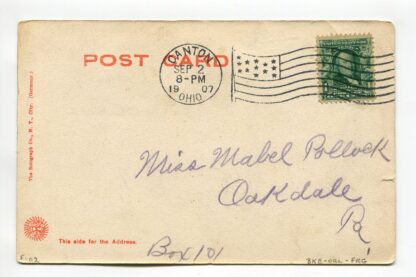 POST CARD
CANTON
SEP 2
8-PM
1907
OHIO
Miss Mabel Pollock
Oakdale
Pa
Box 101
This side for the Address.
The Rotograph Co., N. Y. City. (Germany.)
F-02